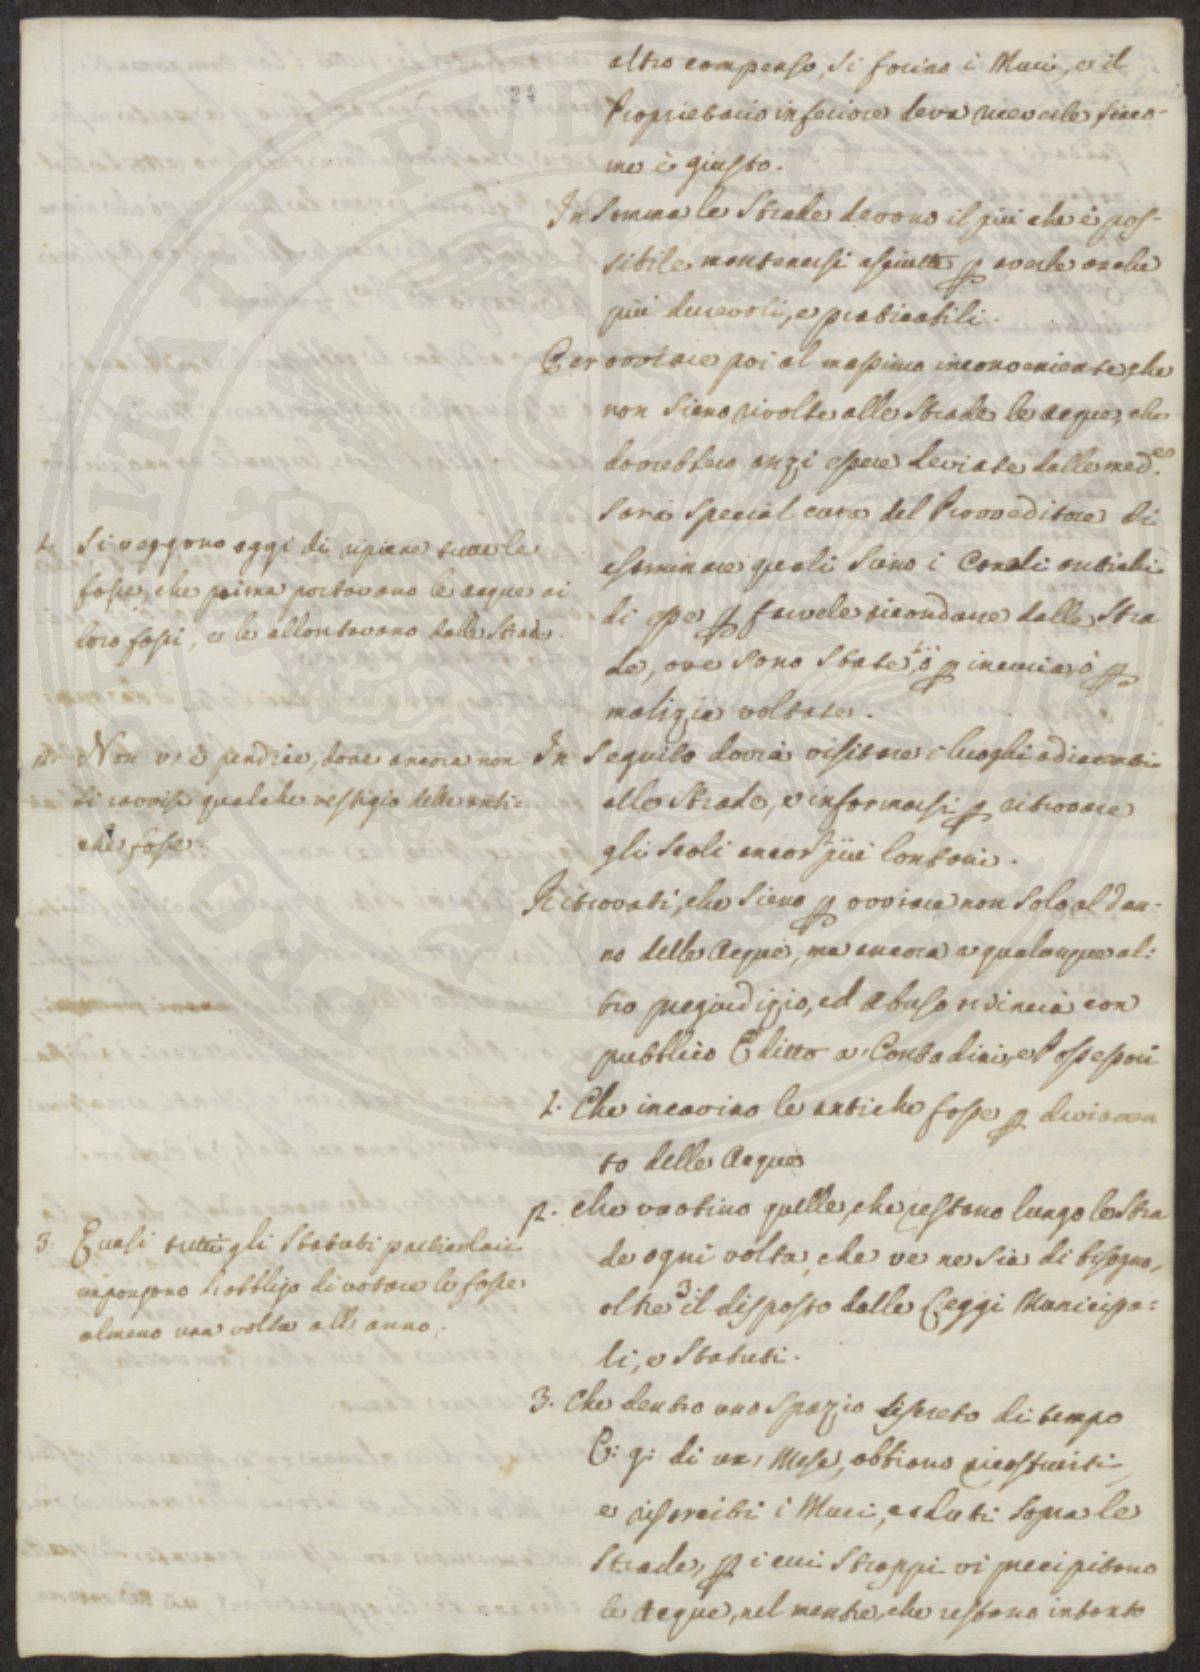 24
altro compenso, si forino i Muri, e il
Proprietario inferiore deva riceverle, sicco-
me è giusto.
In somma le Strade devono il più che è pos-
sibile mantenersi asciutte p averle anche
più durevoli, e praticabili.
Per ovviare poi al massimo inconveniente, che
non sieno rivolte alle Strade le acque, che
dovrebbero anzi essere deviate dalle med.e
sarà special cura del Provveditore di
esaminare quali sieno i Canali antichi
di esse p farvele ricondurre dalle Stra
de, ove sono state 1. ò p incuria, ò p
malizia voltate.
In seguito dovrà visitare i luoghi adiacenti
alle Strade, e informarsi p ritrovare
gli scoli ancor più lontani.
Ritrovati, che sieno p ovviare non solo al dan-
no delle Acque, ma ancora a qualunque al:
tro pregiudizio, ed abuso ordinerà con
pubblico Editto a' Contadini, e Possessori
1. Che incavino le antiche fosse p deviamen
to delle Acque
2. che vuotino quelle, che restano lungo le Stra
de ogni volta, che ve ne sia di bisogno,
oltre 3 il disposto dalle Leggi Municipa=
li, e Statuti.
3. Che dentro uno spazio discreto di tempo
E: g: di un' Mese, abbiano ricostruiti
e risarciti i Muri, caduti sopra le
Strade, p i cui strappi vi precipitano
le Acque, nel mentre, che restano intanto
1. Si veggono oggi di ripiene tutte le
fosse, che prima portavano le acque ai
loro fossi, e le allontavano dalle Strade.
2. Non v'è pendice, dove ancora non
si ravvisi qualche vestigio delle anti=
che fosse.
3. Quasi tutti gli Statuti particolari
impongono l'obbligo di votare le fosse
almeno una volta all' anno.
PUBLIC